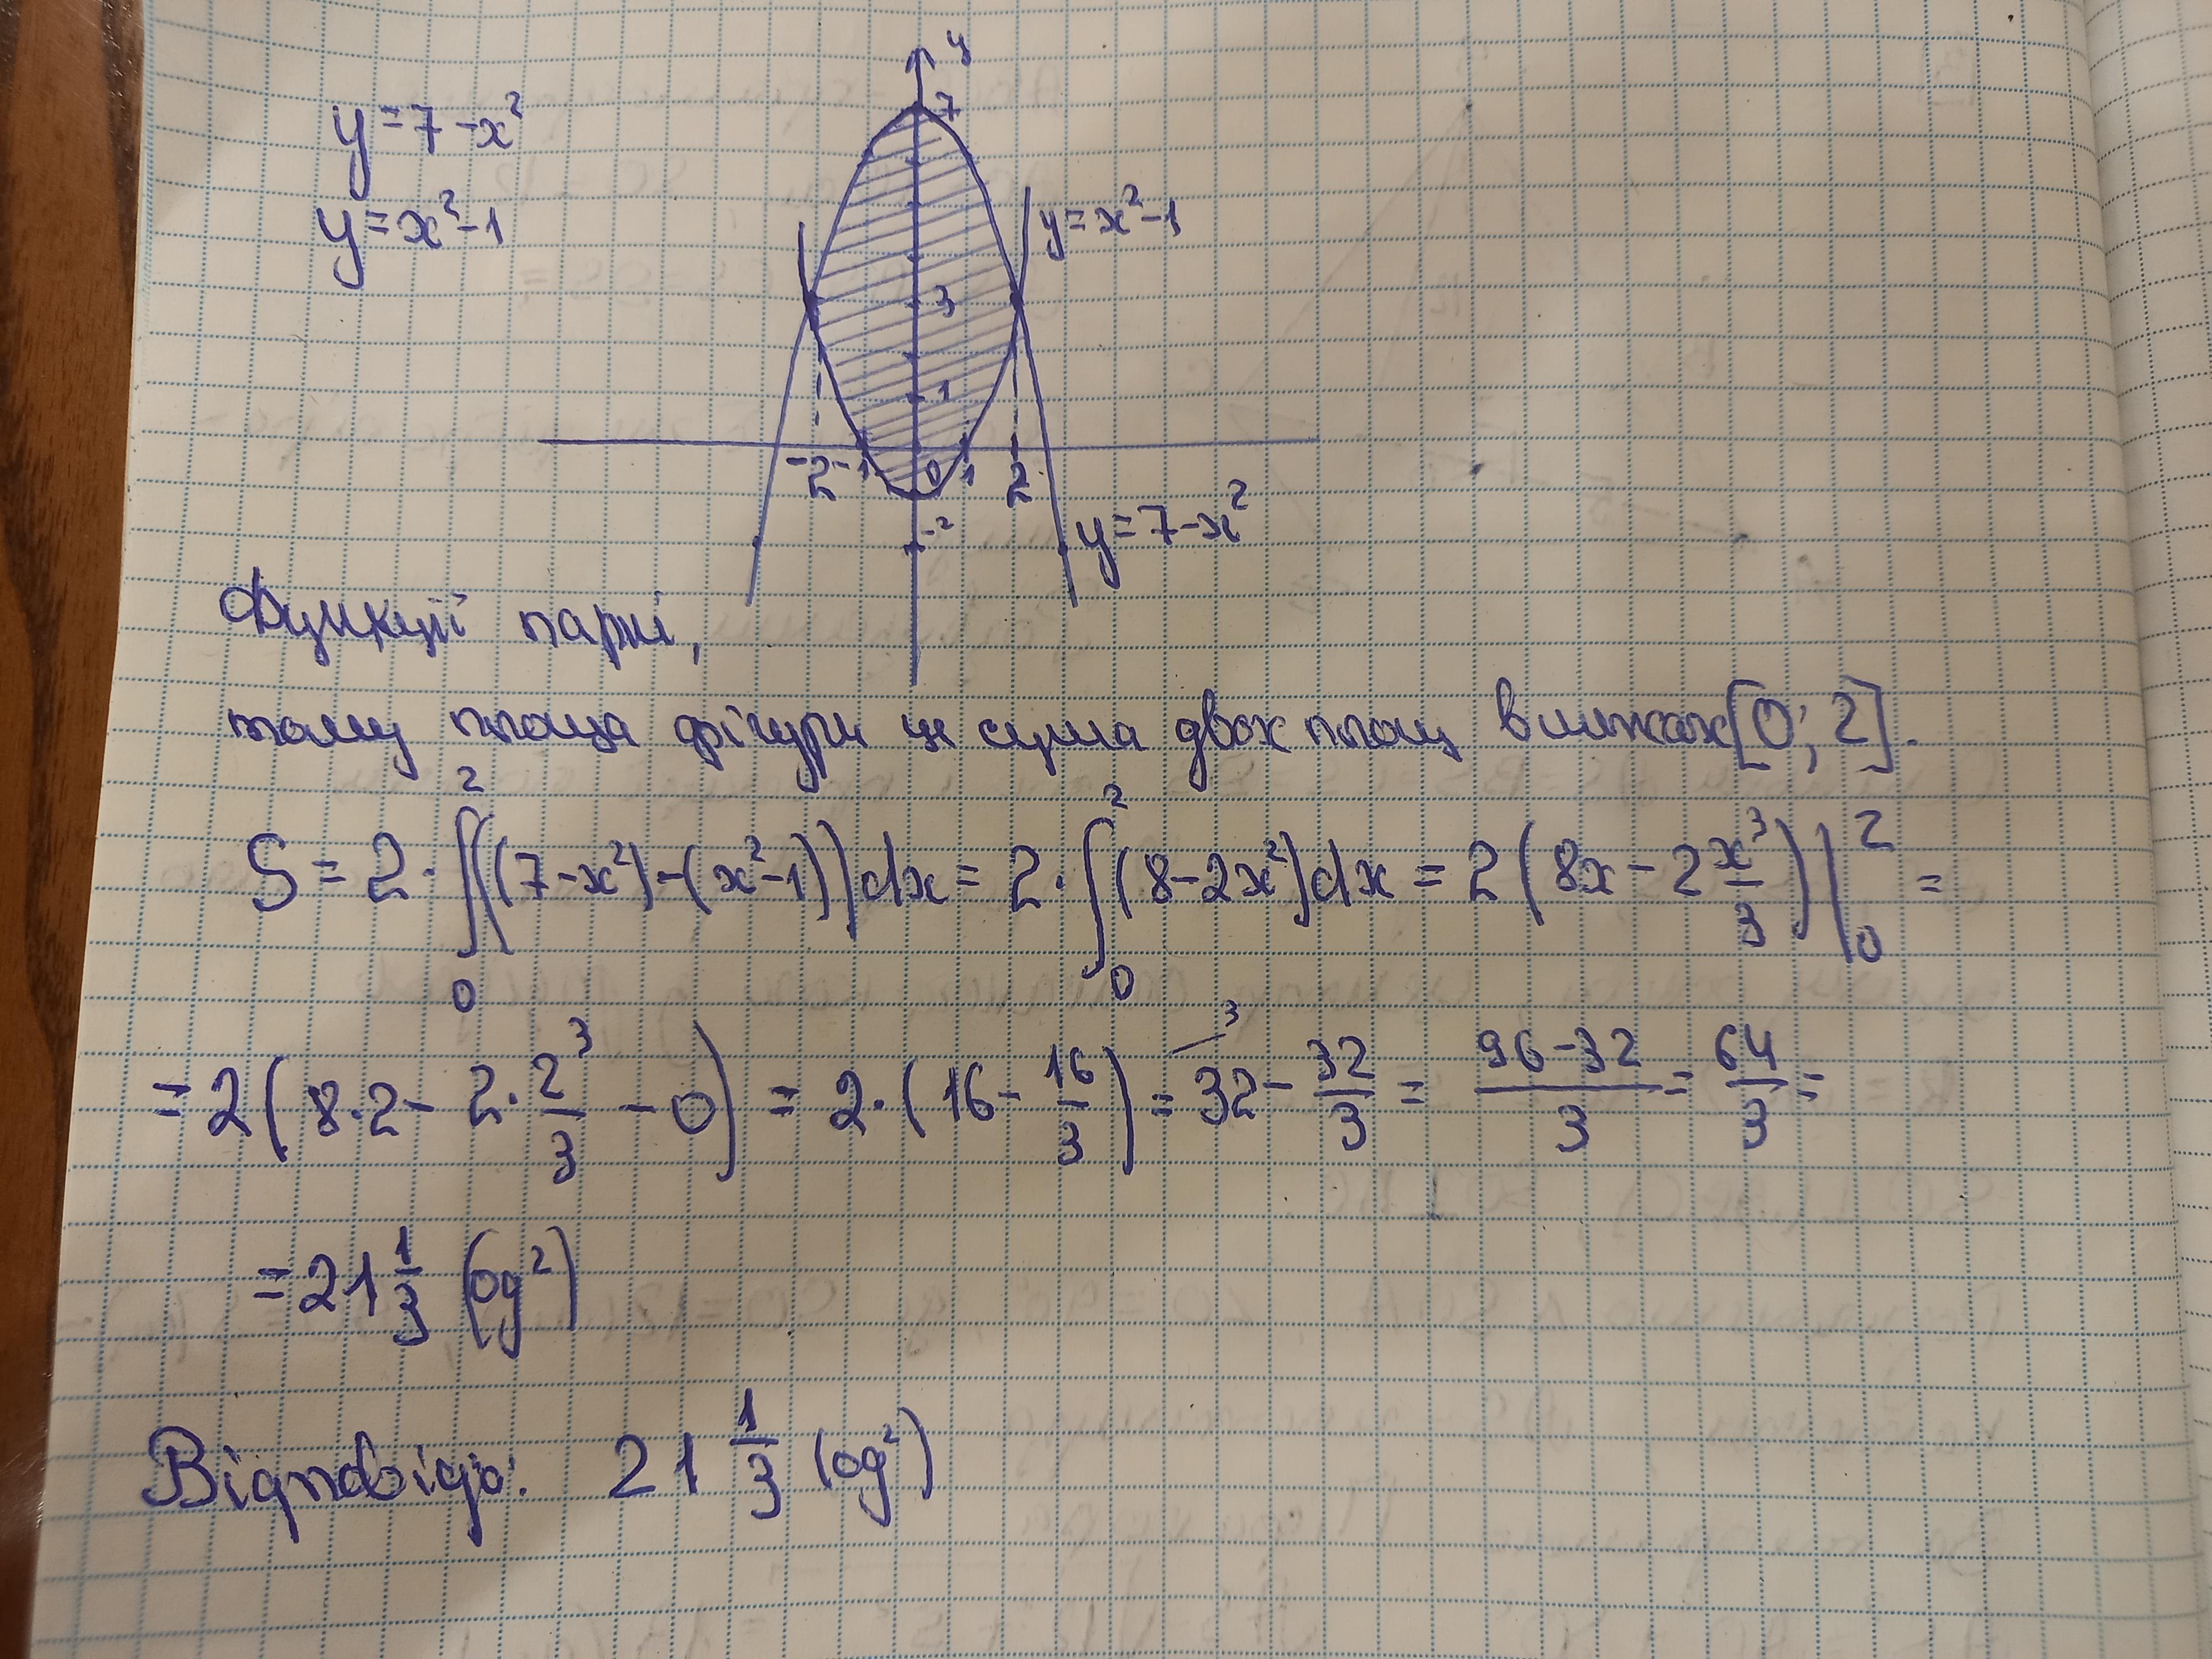 y = 7 - x²
y = x² - 1
y
7
y = x² - 1
3
1
-2 -1 0 1 2
-2
y = 7 - x²
Функції парні,
тому площа фігури це сума двох площ в межах [0; 2].
S = 2 · ∫₀² ((7 - x²) - (x² - 1)) dx = 2 · ∫₀² (8 - 2x²) dx = 2 (8x - 2 x³/3) |₀² =
= 2 (8·2 - 2 · 2³/3 - 0) = 2 · (16 - 16/3) = 32 ⁄³ - 32/3 = (96 - 32)/3 = 64/3 =
= 21 1/3 (од²)
Відповідь: 21 1/3 (од²)